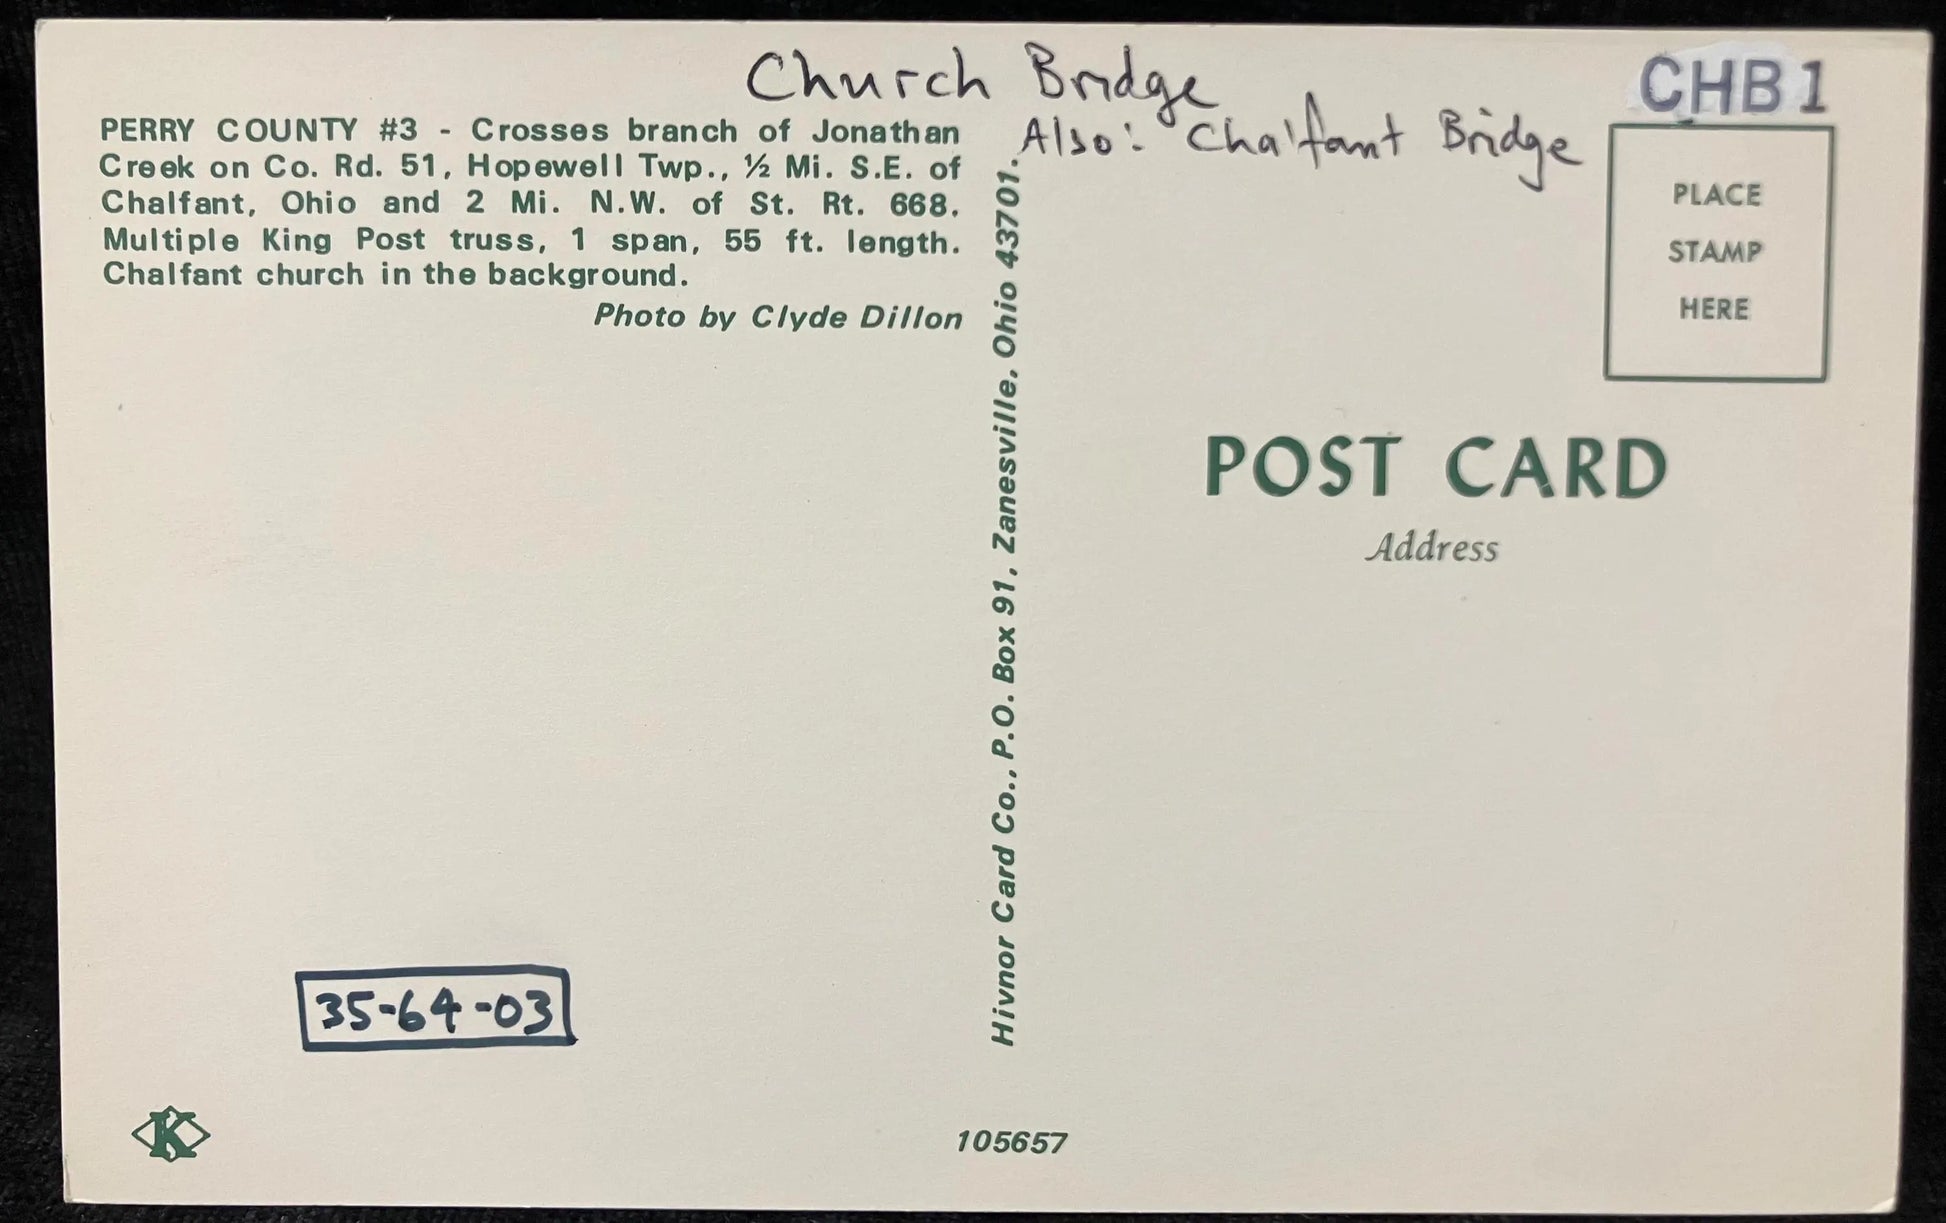 Church Bridge
Also: Chalfant Bridge
CHB1
PERRY COUNTY #3 - Crosses branch of Jonathan
Creek on Co. Rd. 51, Hopewell Twp., ½ Mi. S.E. of
Chalfant, Ohio and 2 Mi. N.W. of St. Rt. 668.
Multiple King Post truss, 1 span, 55 ft. length.
Chalfant church in the background.
Photo by Clyde Dillon
Hivnor Card Co., P.O. Box 91, Zanesville, Ohio 43701.
PLACE
STAMP
HERE
POST CARD
Address
35-64-03
K
105657